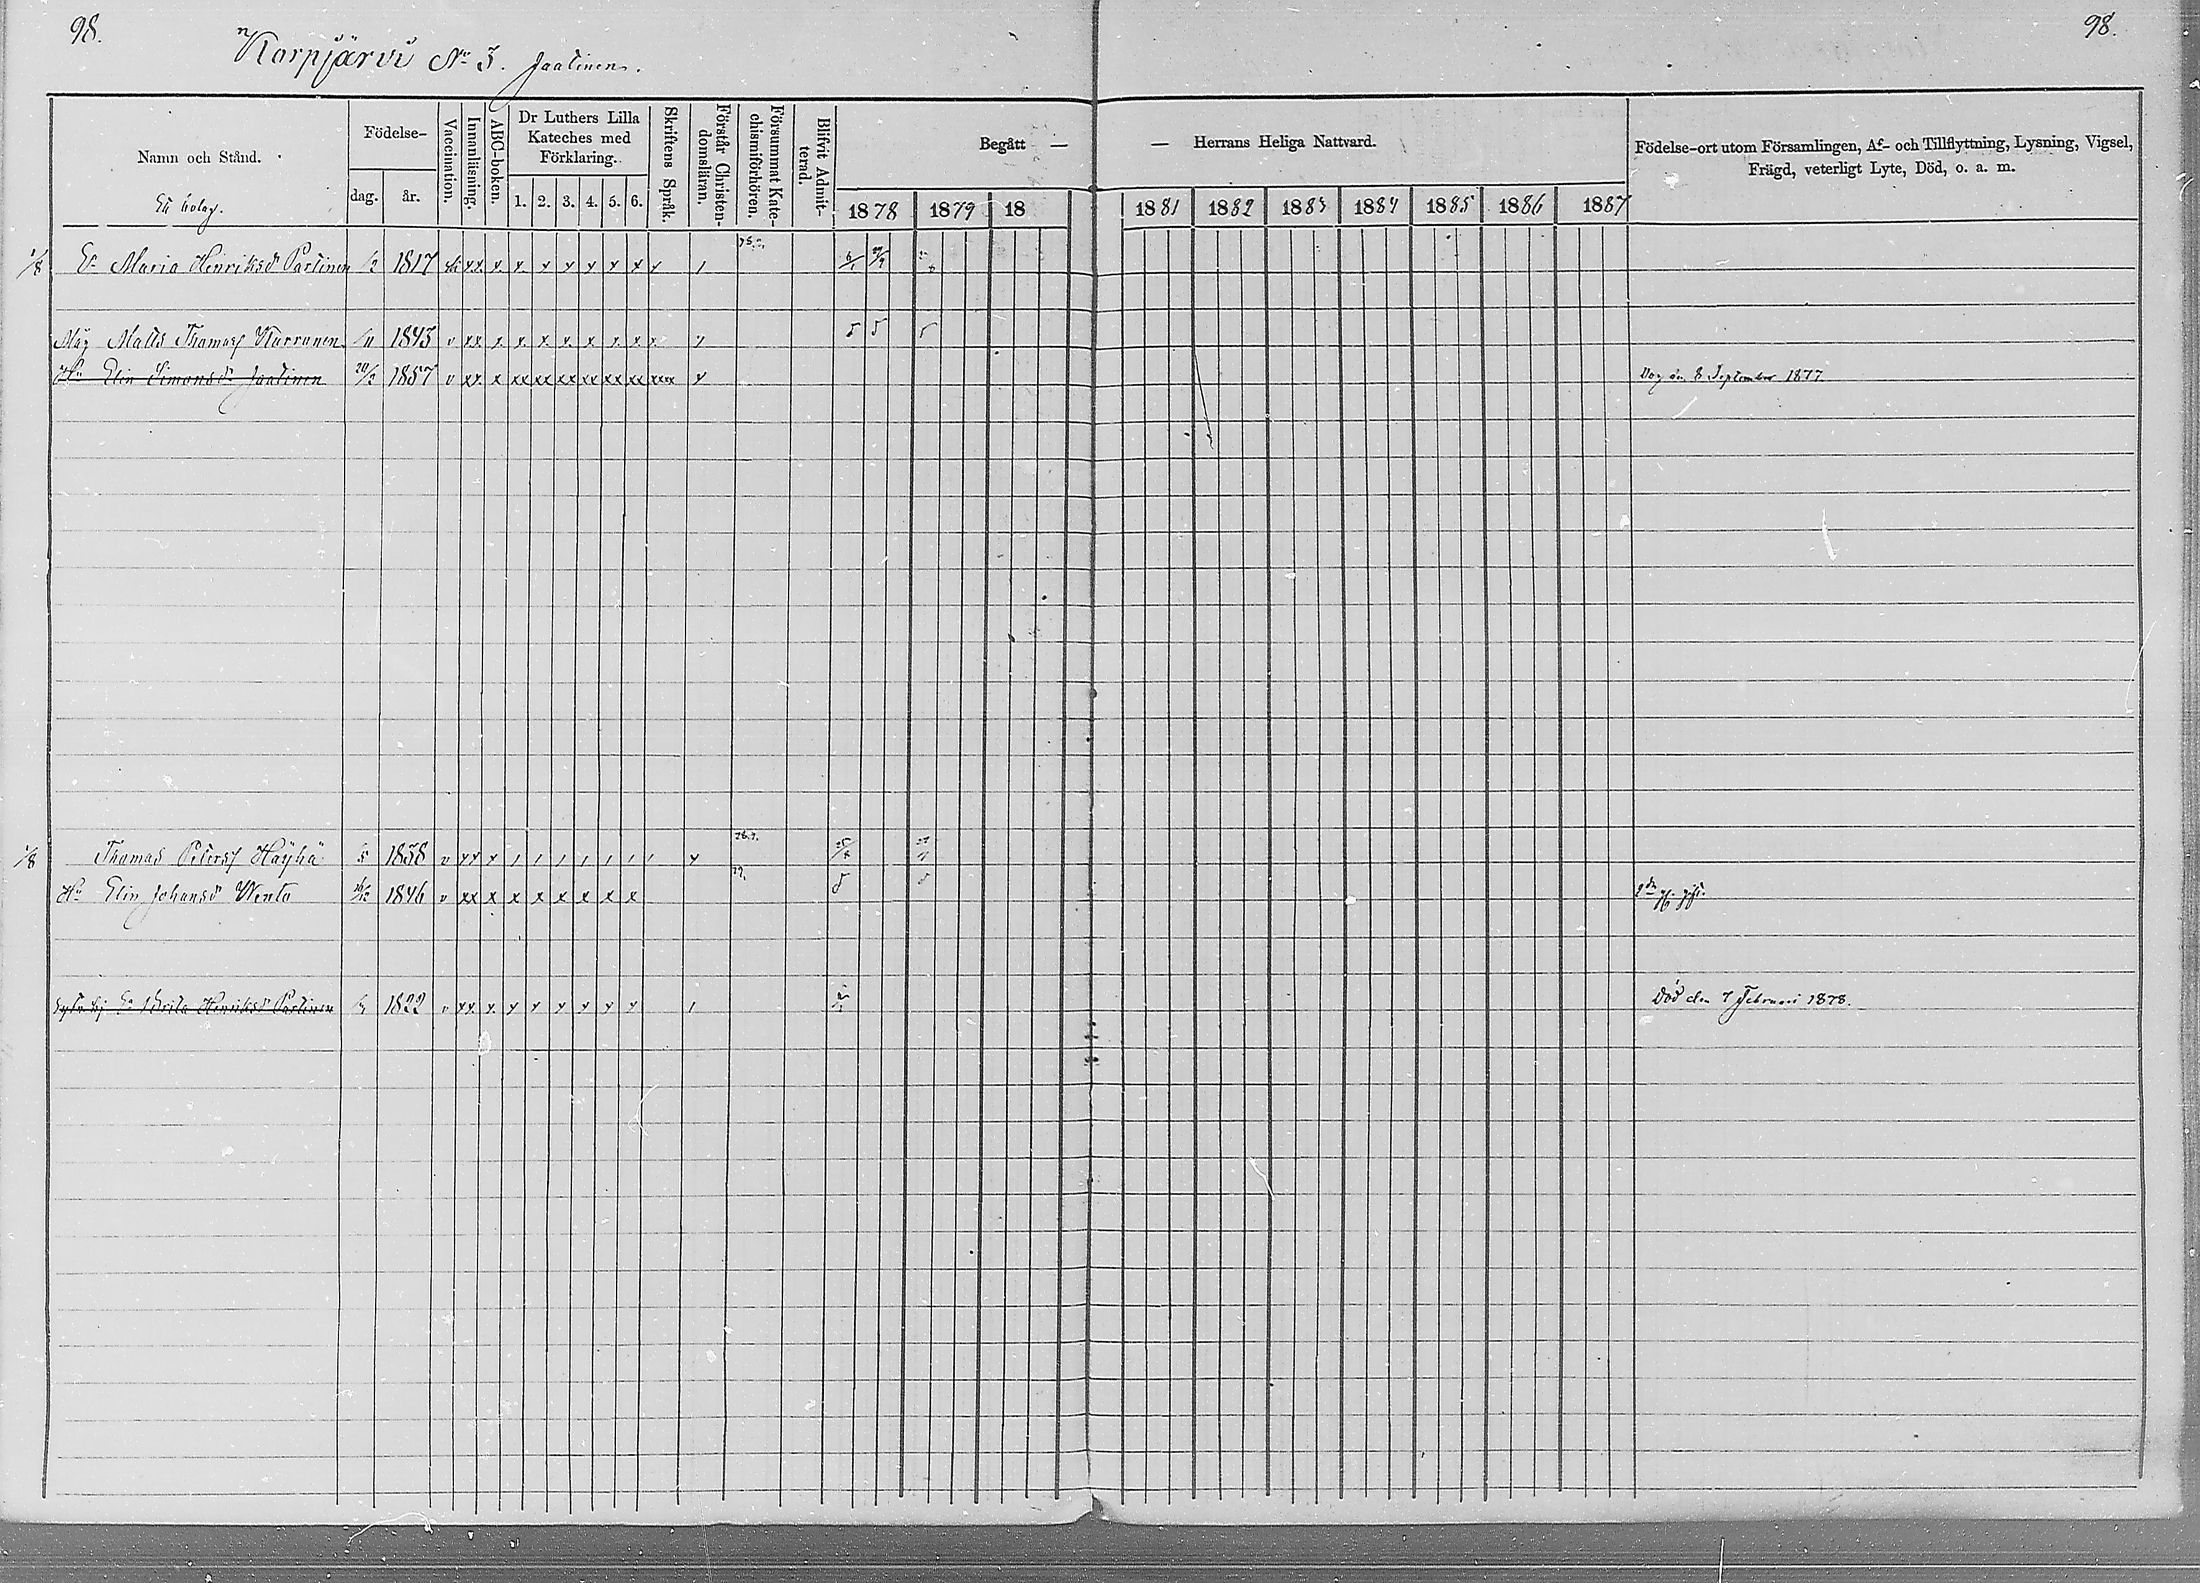 98.
98.
Korpjärvi No 3. Jaatinen.
Namn och Stånd.
Ett bolag.
Födelse-
dag. år.
Vaccination.
Innanläsning.
ABC-boken.
Dr Luthers Lilla
Kateches med
Förklaring.
1. 2. 3. 4. 5. 6.
Skriftens Språk.
Förstår Christen-
domsläran.
Försummat Kate-
chismiförhören.
Blifvit Admit-
terad.
Begått —
— Herrans Heliga Nattvard.
1878 1879 18
1881 1882 1883 1884 1885 1886 1887
Födelse-ort utom Församlingen, Af- och Tillflyttning, Lysning, Vigsel,
Frägd, veterligt Lyte, Död, o. a. m.
1/8 Ea Maria Henriksdr Partinen 1817 x x x x x x x x
Måg Matts Thomass Kurronen 1843 v xx x x x x x x x x
Hu Elin Simonsdr Jaatinen 20/2 1857 v xx x xx xx xx xx xx xx xxxx x Dog den 8 September 1877.
1/8 Thomas Peterss Häyhä 1838 v xx x / / / / / / / x
Hu Elin Johansdr Wento 1846 v xx x x x x x x x
Ea Brita Henriksdr Partinen 1822 v xx x x x x x x x Död den 7 Februari 1878.